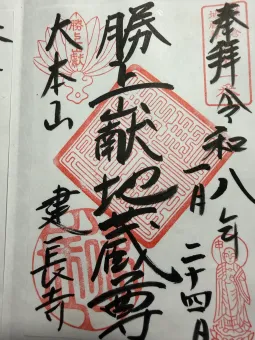 奉拝
令和八年
一月二十四日
勝上献地蔵尊
大本山
建長寺